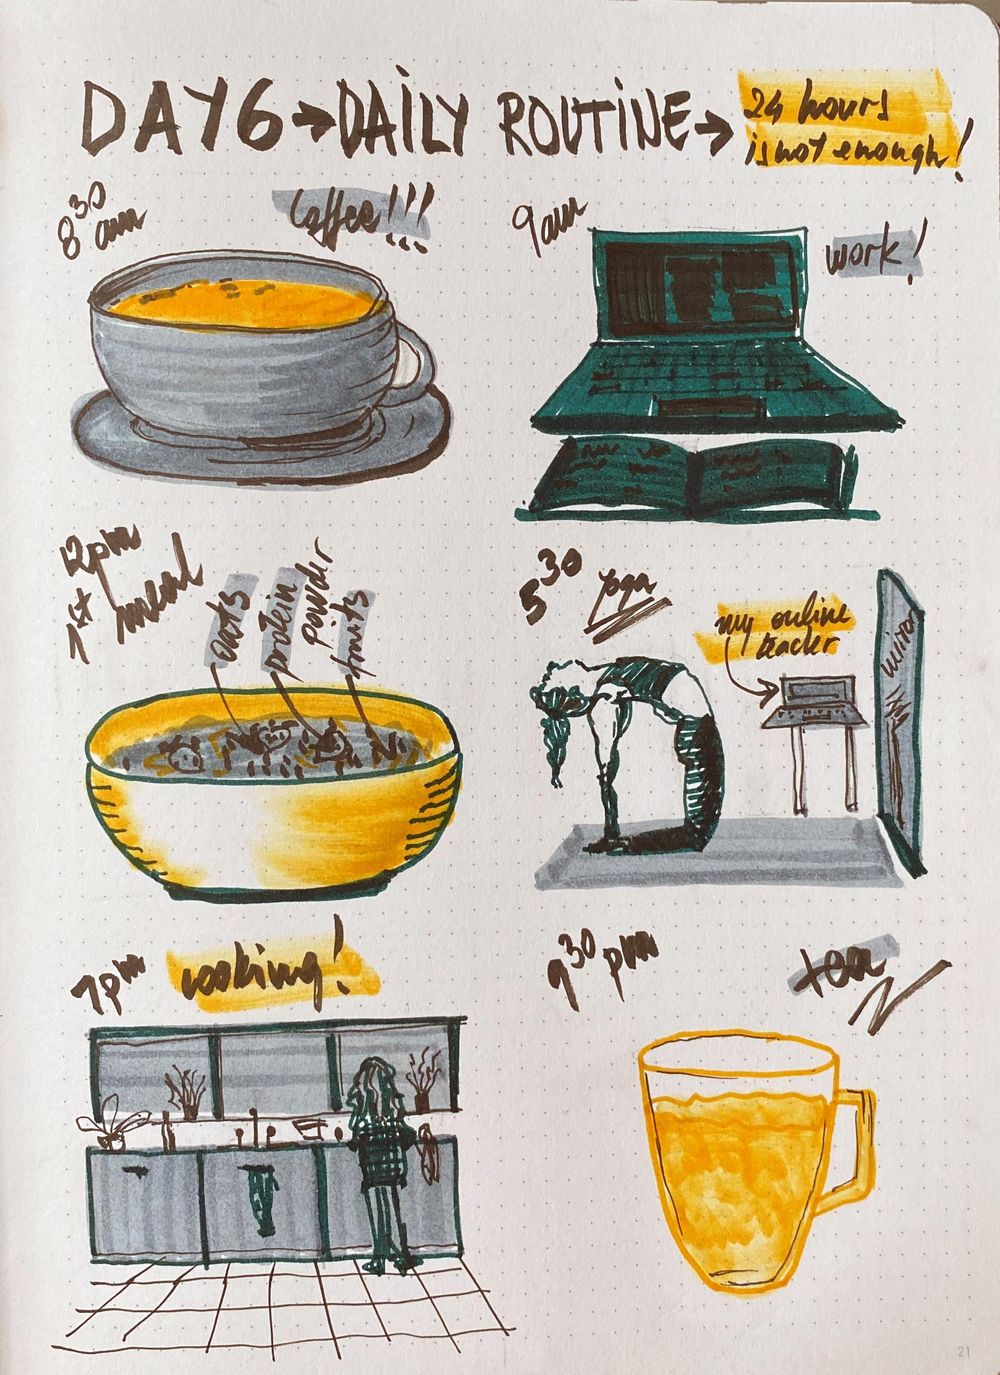 DAY6→DAILY ROUTINE→
24 hours
is not enough!
8³⁰
am
Coffee!!!
9am
work!
12pm
1st meal
Oats
protein
powder
fruits
5³⁰
yoga
my online
teacher
mirror
7pm
cooking!
9³⁰ pm
tea
21